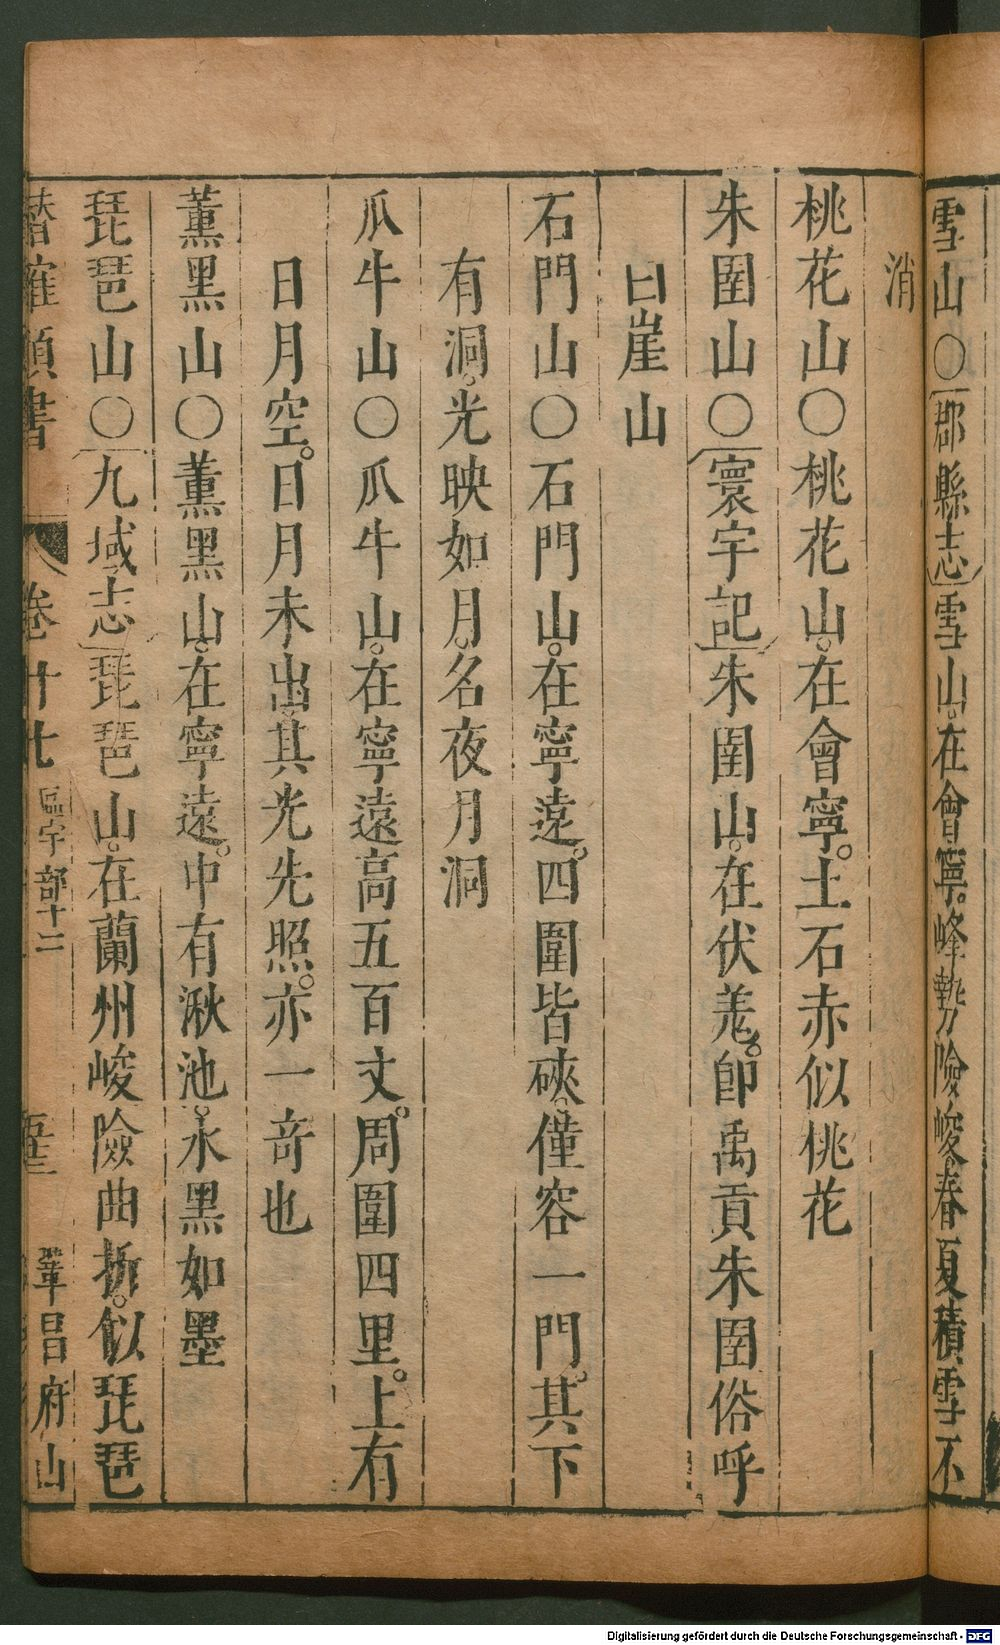 雪山〇郡縣志雪山在會寧。峰勢險峻春夏積雪不
消
桃花山〇桃花山。在會寧。土石赤似桃花
朱圉山〇寰宇記朱圉山。在伏羗。卽禹貢朱圉俗呼
白崖山
石門山〇石門山。在寧遠。四圍皆硤。僅容一門。其下
有洞。光映如月。名夜月洞
瓜牛山〇瓜牛山。在寧遠高五百丈。周圍四里。上有
日月空。日月未出。其光先照。亦一竒也
薰黑山〇薰黑山。在寧遠。中有湫池。水黑如墨
琵琶山〇九域志琵琶山。在蘭州峻險曲折。似琵琶
潛確類書 卷廿七 區宇部十二 五十三 鞏昌府山
Digitalisierung gefördert durch die Deutsche Forschungsgemeinschaft - DFG